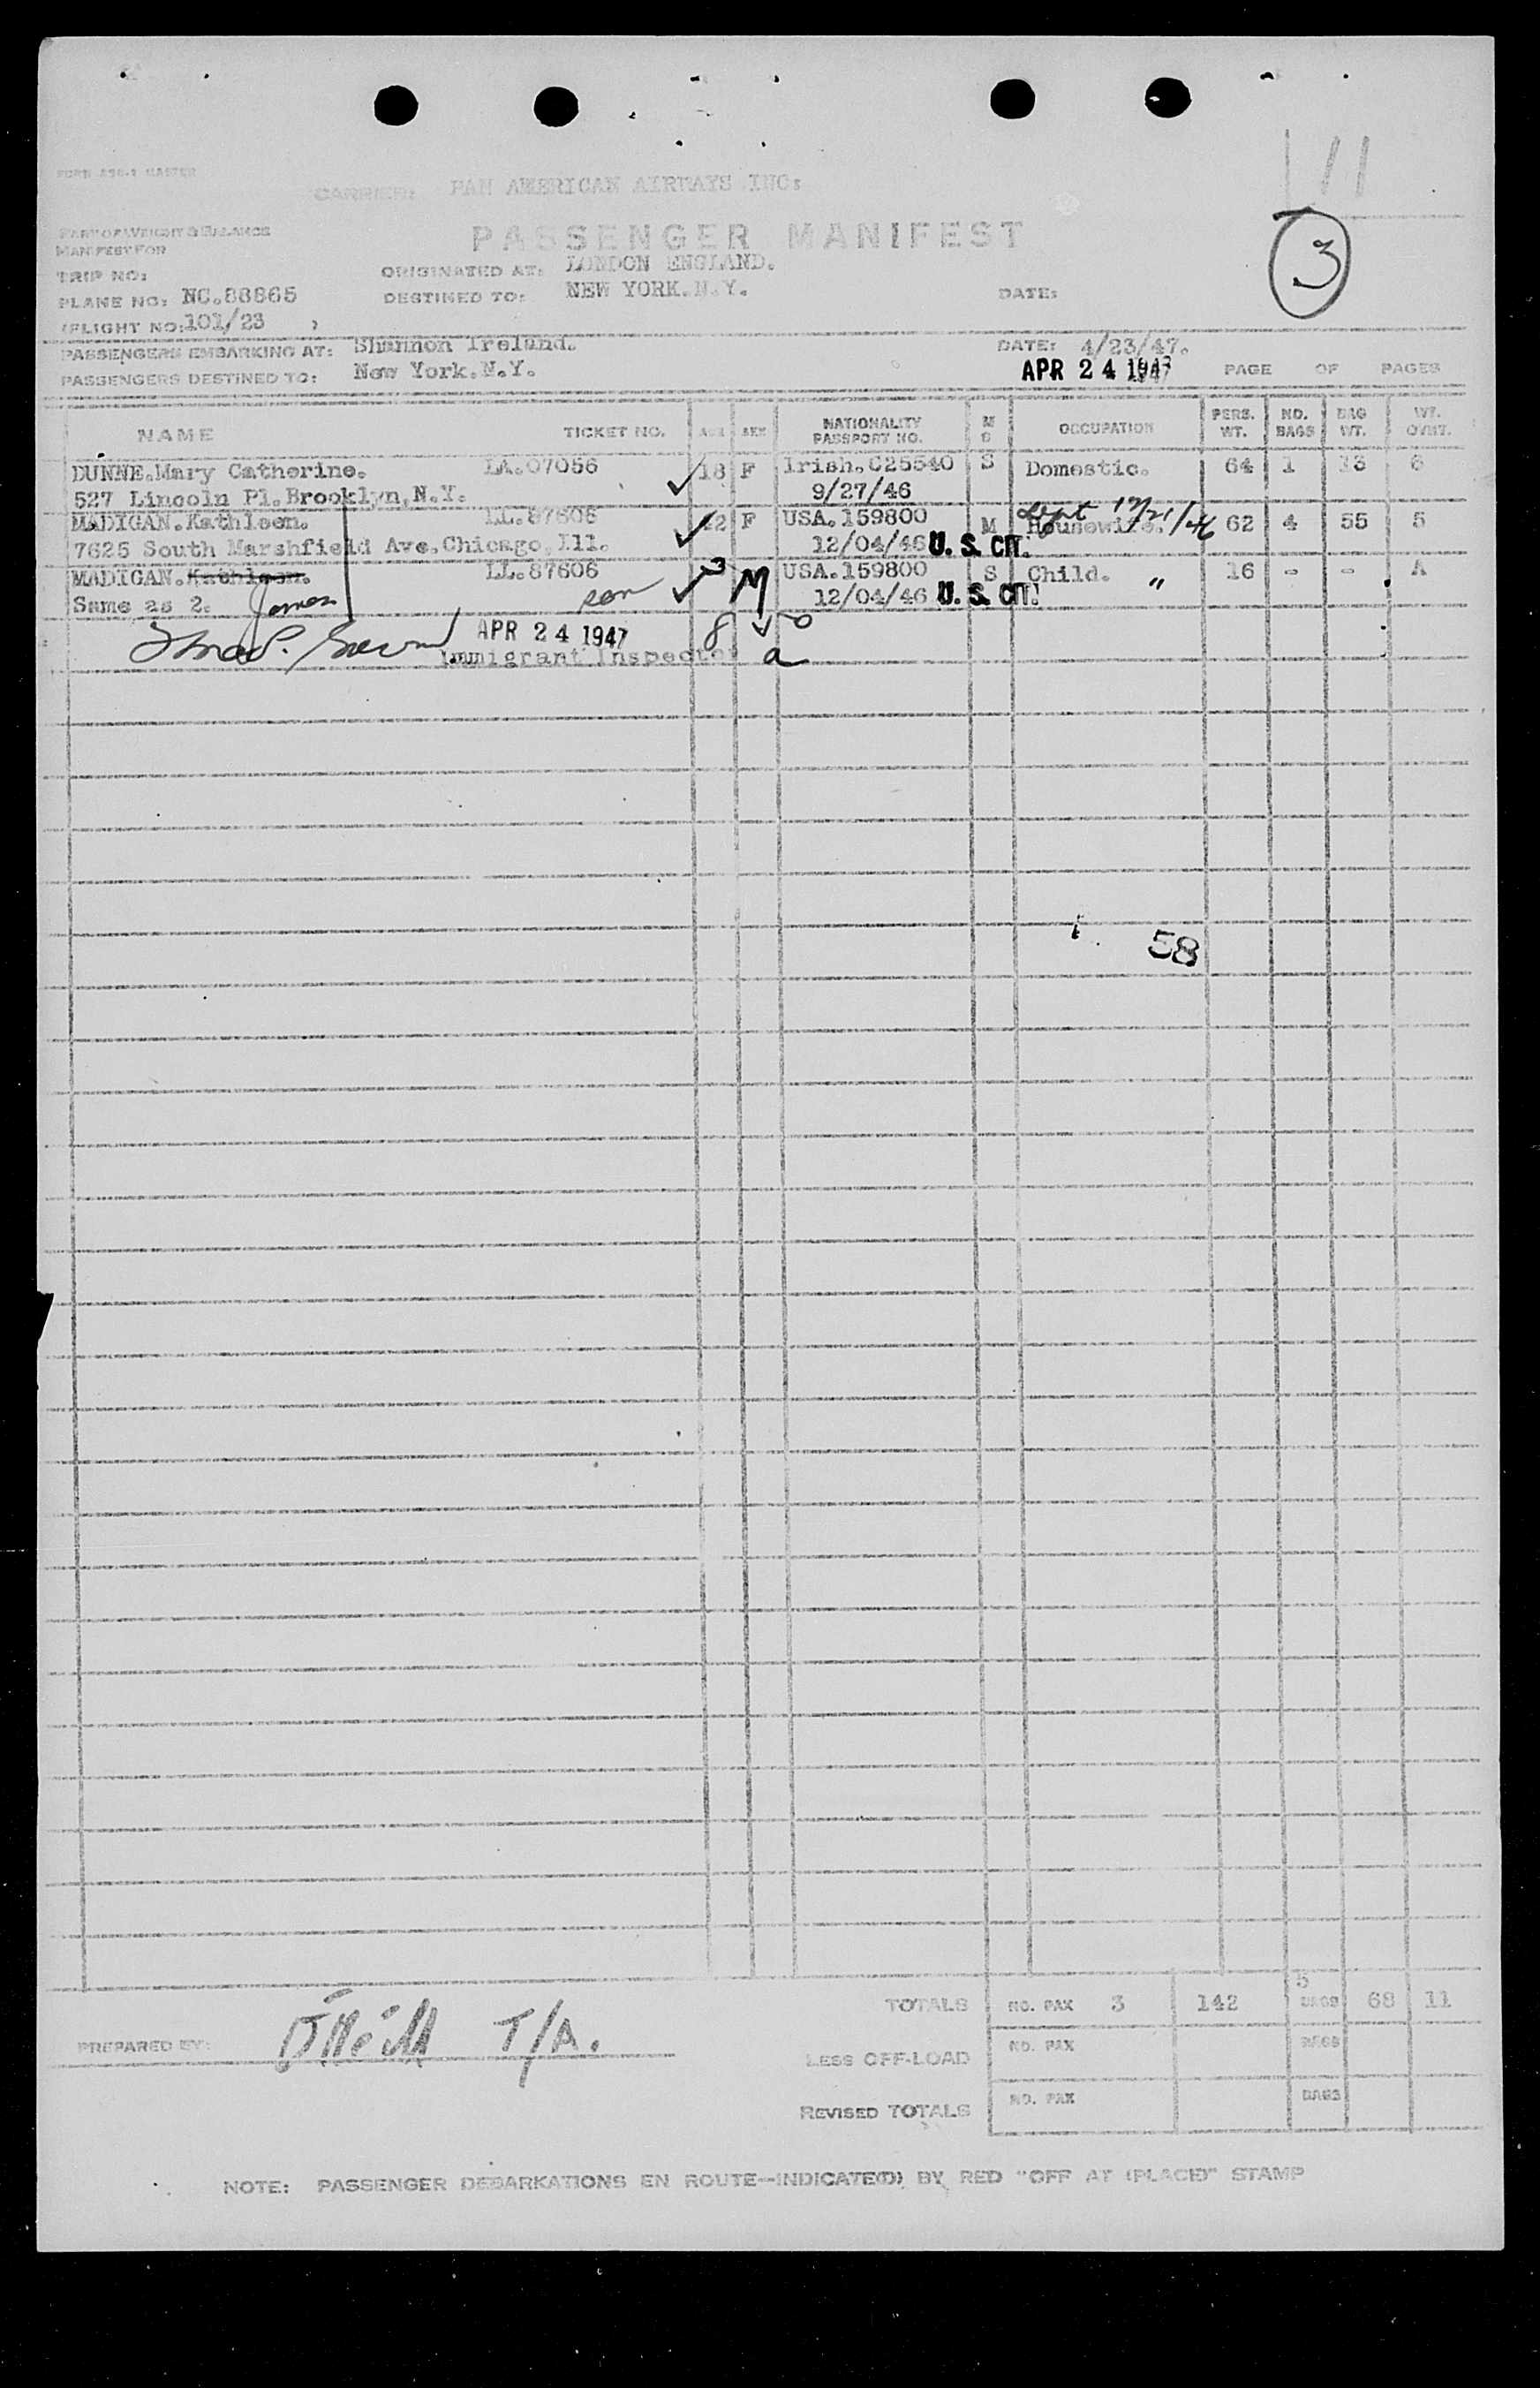 11
FORM 430-1 MASTER
CARRIER: PAN AMERICAN AIRWAYS INC:
PART OF WEIGHT & BALANCE
MANIFEST FOR
PASSENGER MANIFEST
3
TRIP NO:
ORIGINATED AT: LONDON ENGLAND.
PLANE NO: NC.88865
DESTINED TO: NEW YORK.N.Y.
DATE:
(FLIGHT NO:101/23 )
PASSENGERS EMBARKING AT: Shannon Ireland.
DATE: 4/23/47.
PASSENGERS DESTINED TO: New York.N.Y.
APR 24 1947
PAGE OF PAGES
NAME TICKET NO. AGE SEX NATIONALITY PASSPORT NO. M S OCCUPATION PERS. WT. NO. BAGS BAG WT. WT. OVWT.
DUNNE.Mary Catherine. LA.07056 18 F Irish.C25540 S Domestic. 64 1 13 6
527 Lincoln Pl.Brooklyn,N.Y. 9/27/46
MADIGAN.Kathleen. LL.87605 F USA.159800 M Housewife. 62 4 55 5
7625 South Marshfield Ave.Chicago,Ill. 12/04/46 U. S. CIT.
MADIGAN.Kathleen. LL.87606 3 M USA.159800 S Child. " 16 - - A
Same as 2. James son 12/04/46 U. S. CIT.
APR 24 1947
Immigrant Inspector
58
TOTALS NO. PAX 3 142 5 BAGS 68 11
PREPARED BY: O'Neill T/A.
LESS OFF-LOAD NO. PAX BAGS
REVISED TOTALS NO. PAX BAGS
NOTE: PASSENGER DEBARKATIONS EN ROUTE--INDICATE(D) BY RED "OFF AT (PLACE)" STAMP